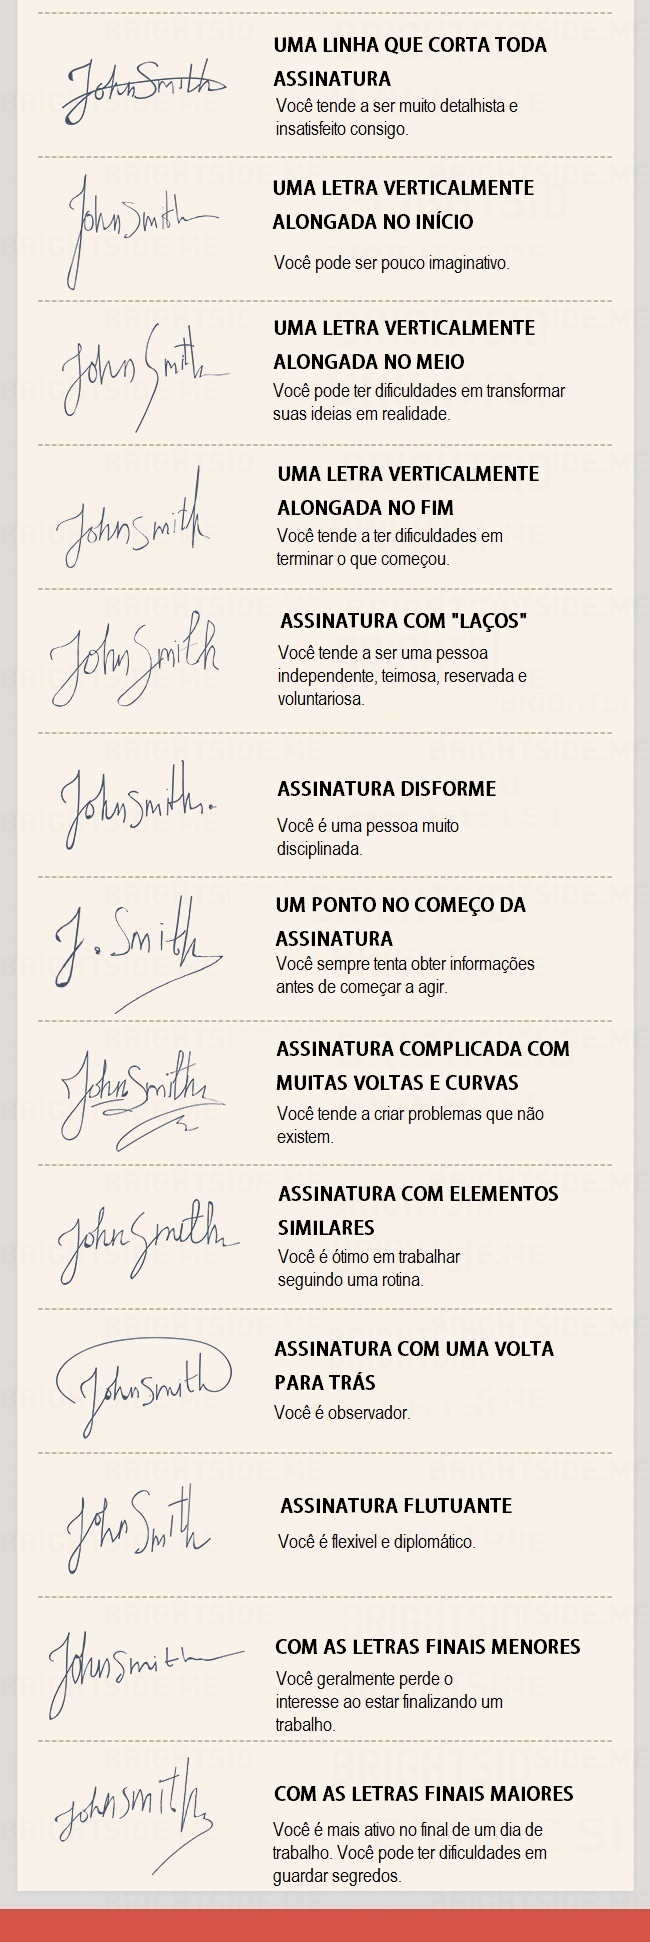 John Smith
UMA LINHA QUE CORTA TODA
ASSINATURA
Você tende a ser muito detalhista e
insatisfeito consigo.
John Smith
UMA LETRA VERTICALMENTE
ALONGADA NO INÍCIO
Você pode ser pouco imaginativo.
John Smith
UMA LETRA VERTICALMENTE
ALONGADA NO MEIO
Você pode ter dificuldades em transformar
suas ideias em realidade.
John smith
UMA LETRA VERTICALMENTE
ALONGADA NO FIM
Você tende a ter dificuldades em
terminar o que começou.
John Smith
ASSINATURA COM "LAÇOS"
Você tende a ser uma pessoa
independente, teimosa, reservada e
voluntariosa.
John Smith.
ASSINATURA DISFORME
Você é uma pessoa muito
disciplinada.
J. Smith
UM PONTO NO COMEÇO DA
ASSINATURA
Você sempre tenta obter informações
antes de começar a agir.
John Smith
ASSINATURA COMPLICADA COM
MUITAS VOLTAS E CURVAS
Você tende a criar problemas que não
existem.
John Smith
ASSINATURA COM ELEMENTOS
SIMILARES
Você é ótimo em trabalhar
seguindo uma rotina.
John Smith
ASSINATURA COM UMA VOLTA
PARA TRÁS
Você é observador.
John Smith
ASSINATURA FLUTUANTE
Você é flexível e diplomático.
John Smith
COM AS LETRAS FINAIS MENORES
Você geralmente perde o
interesse ao estar finalizando um
trabalho.
john smith
COM AS LETRAS FINAIS MAIORES
Você é mais ativo no final de um dia de
trabalho. Você pode ter dificuldades em
guardar segredos.
BRIGHTSIDE.ME